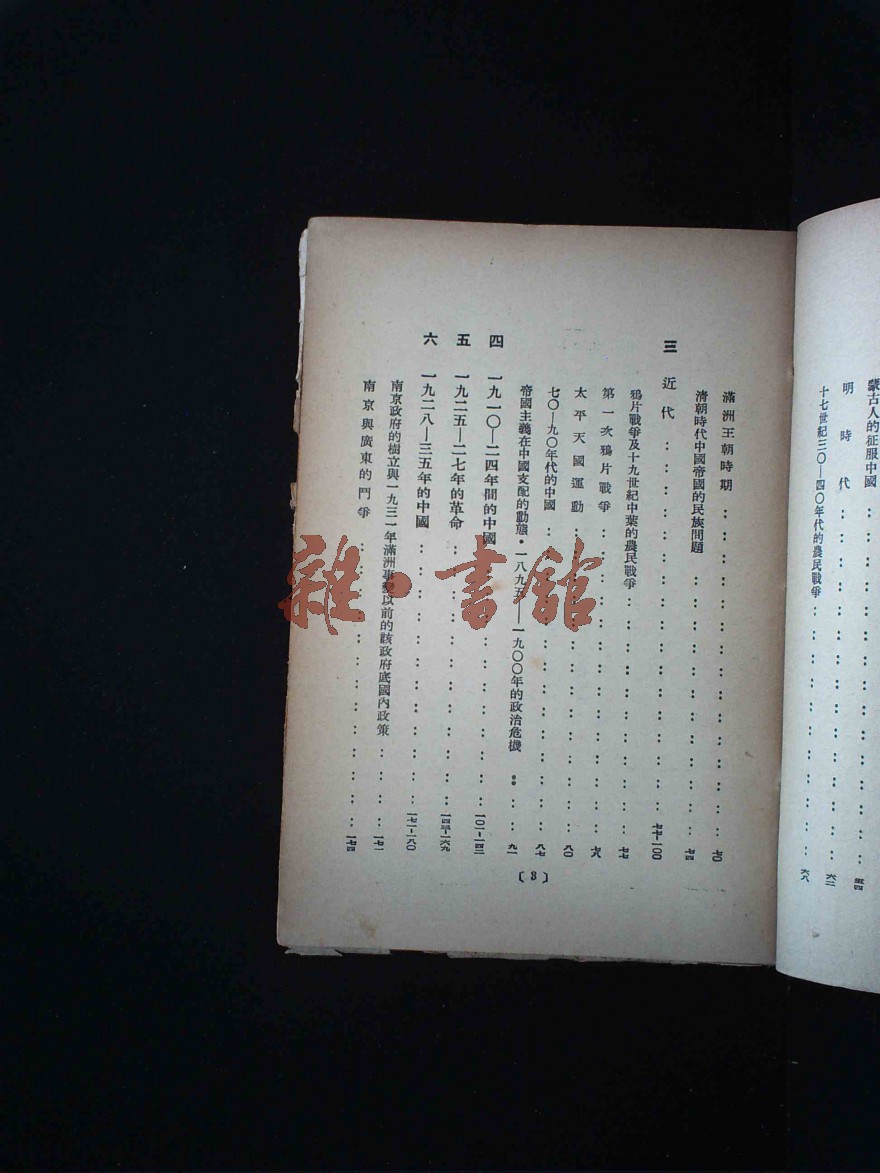 蒙古人的征服中國……五四
明時代……六二
十七世紀三〇—四〇年代的農民戰爭……六八
滿洲王朝時期……七〇
清朝時代中國帝國的民族問題……七四
三 近代……七七-一〇〇
鴉片戰爭及十九世紀中葉的農民戰爭……七七
第一次鴉片戰爭……七八
太平天國運動……八〇
七〇—九〇年代的中國……八七
帝國主義在中國支配的動態•一八九五——一九〇〇年的政治危機……九一
四 一九一〇—二四年間的中國……一〇一-一四二
五 一九二五—二七年的革命……一四三-一六九
六 一九二八—三五年的中國……一七一-一八〇
南京政府的樹立與一九三一年滿洲事變以前的該政府底國內政策……一七一
南京與廣東的鬥爭……一七四
〔3〕
雜•書館